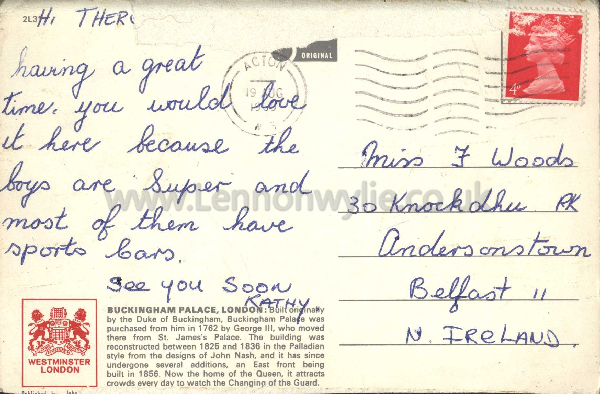 2L3
HI THER
ORIGINAL
ACTON
19 AUG
4P
having a great
time. you would love
it here because the
boys are super and
most of them have
sports cars.
See you Soon
KATHY.
Miss F Woods
30 Knockdhu PK
Andersonstown
Belfast 11
N. IRELAND.
www.Lennonwylie.co.uk
BUCKINGHAM PALACE, LONDON: Built originally
by the Duke of Buckingham, Buckingham Palace was
purchased from him in 1762 by George III, who moved
there from St. James's Palace. The building was
reconstructed between 1825 and 1836 in the Palladian
style from the designs of John Nash, and it has since
undergone several additions, an East front being
built in 1856. Now the home of the Queen, it attracts
crowds every day to watch the Changing of the Guard.
WESTMINSTER
LONDON
Published by John